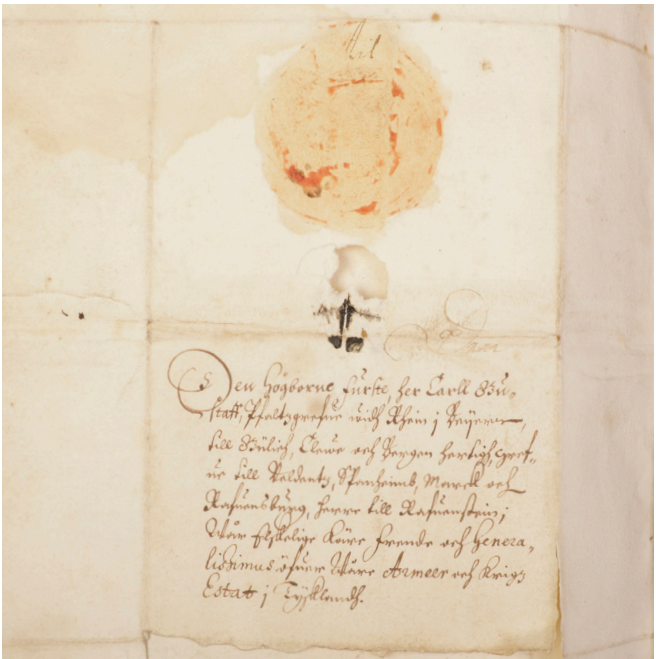 Den Högborne Furste, her Carll Gu-
staff, Pfaltzgrefue widh Rhein j Beijeren,
till Gülich, Clewe och Bergen hertigh, gref-
ue till Valdentz, Spanheimb, Marck och
Rafuensburg, herre till Rafuenstein,
Wår Elskelige käre Frende och Genera-
lissimus öfuer Wåre Armeer och Krigz
Estat j Tysklandh.